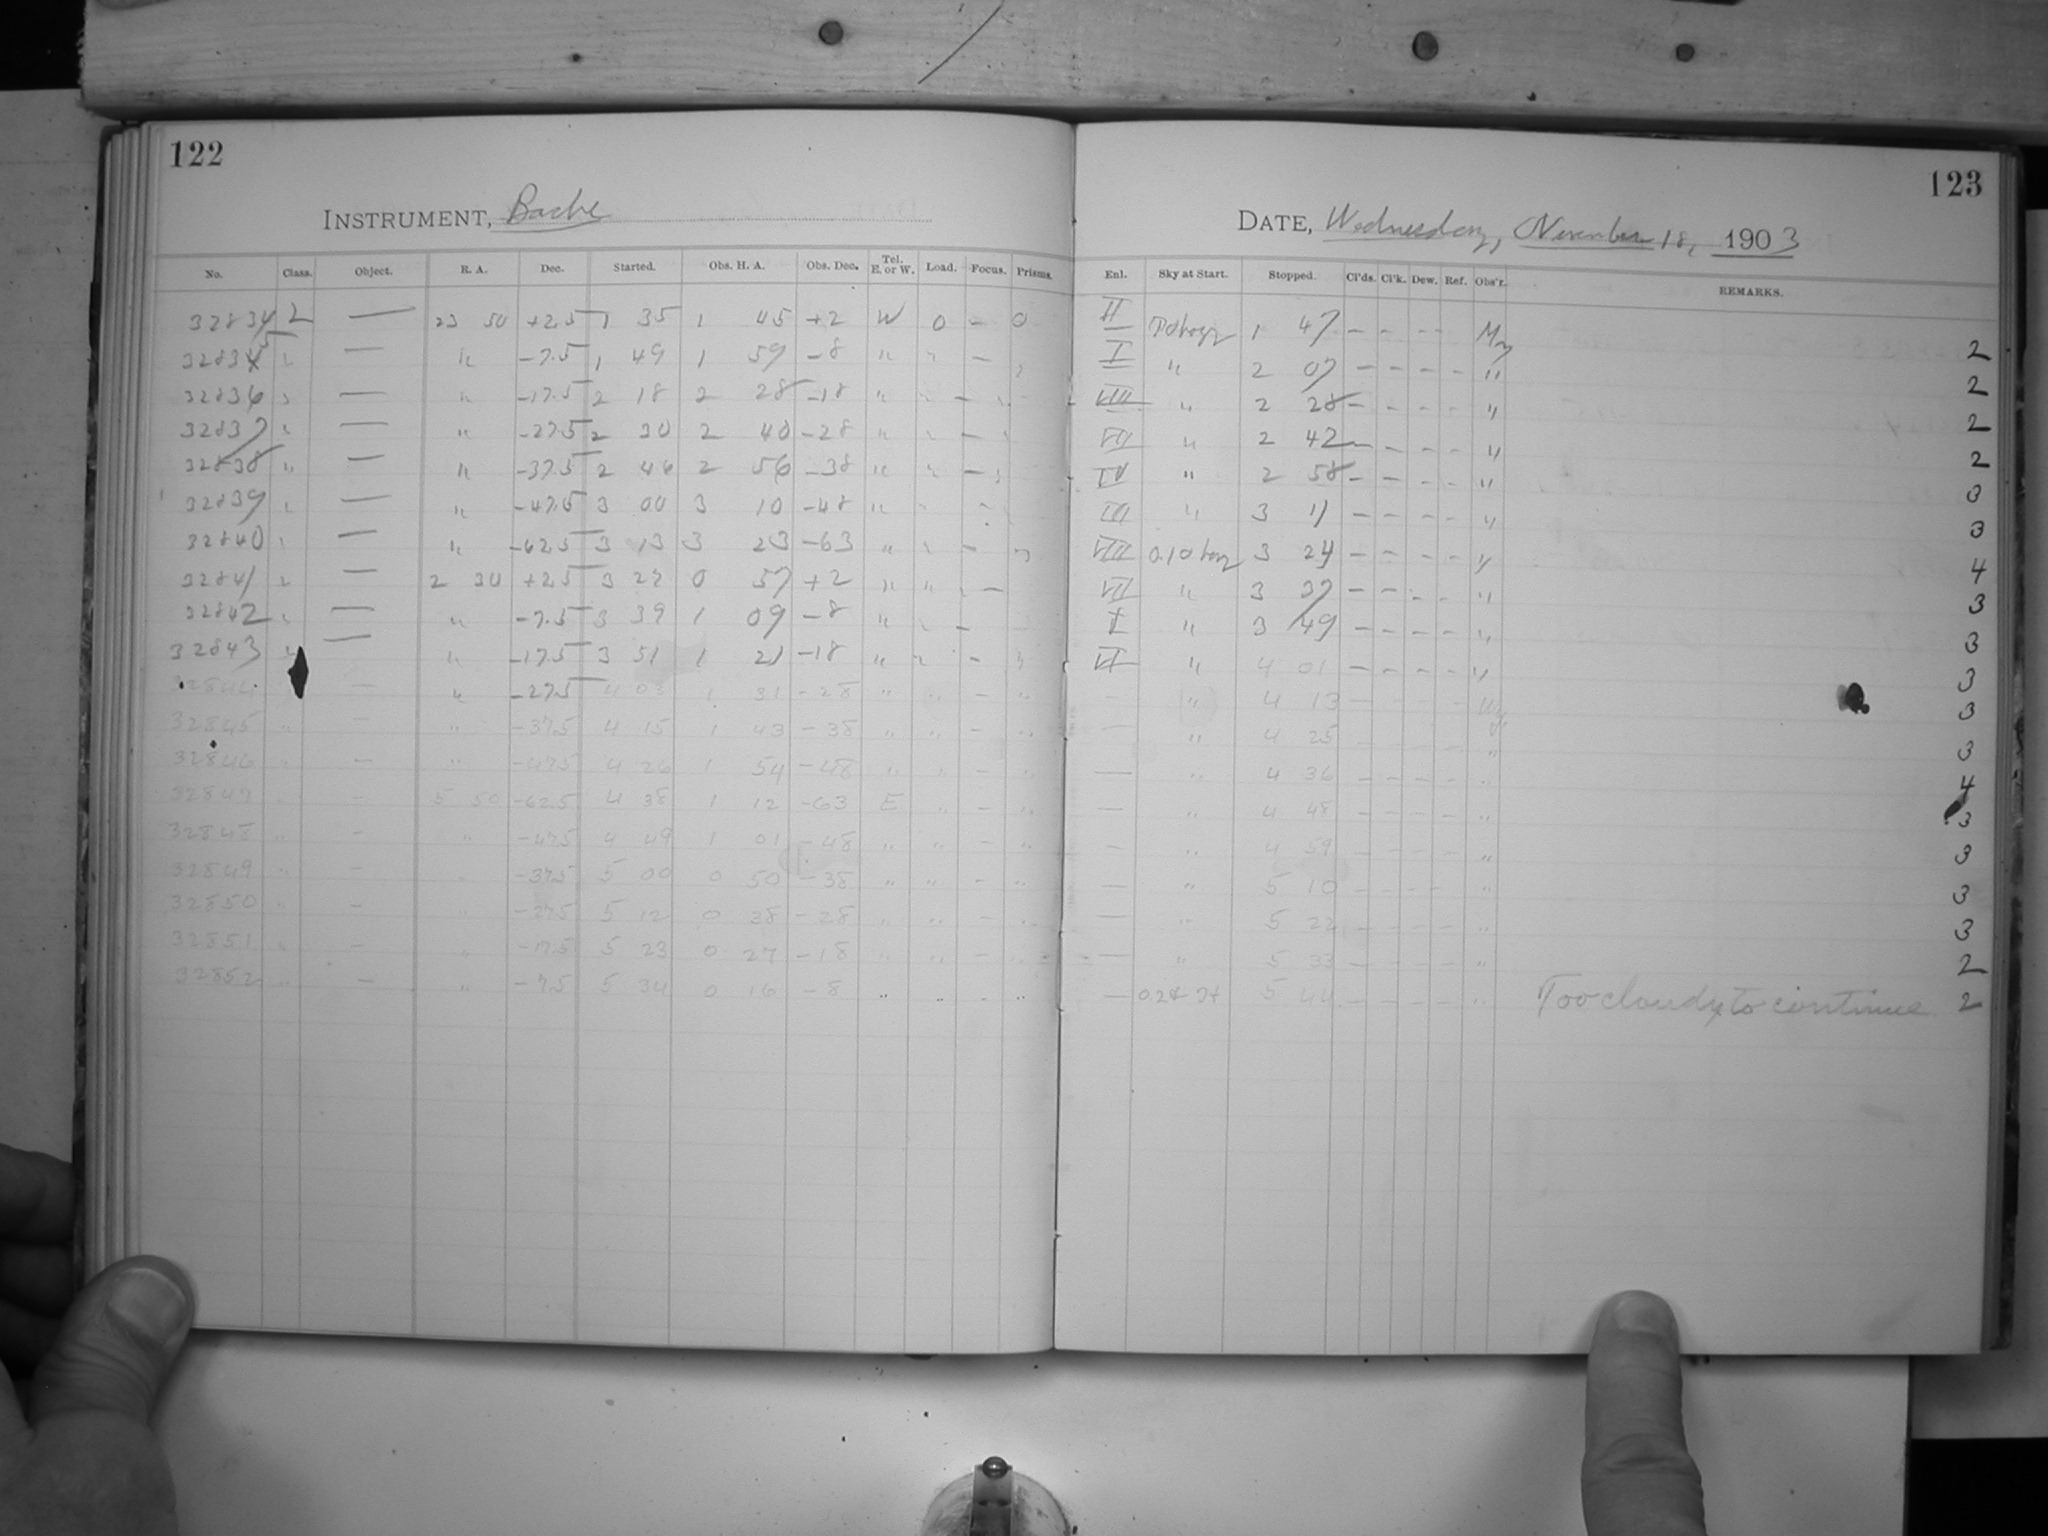 122
INSTRUMENT, Bache
No. Class. Object. R. A. Dec. Started. Obs. H. A. Obs. Dec. Tel. E. or W. Load. Focus. Prisms.
32834 2 — 23 50 +2.5 1 35 1 45 +2 W 0 – 0
32835 " — " -7.5 1 49 1 59 -8 " " – "
32836 " — " -17.5 2 18 2 28 -18 " " – "
32837 " — " -27.5 2 30 2 40 -28 " " – "
32838 " — " -37.5 2 46 2 56 -38 " " – "
32839 " — " -47.5 3 00 3 10 -48 " " – "
32840 " — " -62.5 3 13 3 23 -63 " " – "
32841 " — 2 30 +2.5 3 27 0 57 +2 " " " –
32842 " — " -7.5 3 39 1 09 -8 " " –
32843 " — " -17.5 3 51 1 21 -18 " " – "
32844 — " -27.5 4 03 1 31 -28 " " – "
32845 " – " -37.5 4 15 1 43 -38 " " – "
32846 " – " -47.5 4 26 1 54 -48 " " – "
32847 " – 5 50 -62.5 4 38 1 12 -63 E " – "
32848 " – " -47.5 4 49 1 01 -48 " " – "
32849 " – " -37.5 5 00 0 50 -38 " " – "
32850 " – " -27.5 5 12 0 38 -28 " " – "
32851 " – " -17.5 5 23 0 27 -18 " " – "
32852 " — " -7.5 5 34 0 16 -8 " " – "
123
DATE, Wednesday, November 18, 1903
Enl. Sky at Start. Stopped. Cl'ds. Cl'k. Dew. Ref. Obs'r. REMARKS.
II 1 47 – – – – 2
I " 2 07 – – – – " 2
VIII " 2 28 – – – – " 2
VII " 2 42 – – – – " 2
IV " 2 58 – – – – " 3
III " 3 11 – – – – " 3
VIII 3 24 – – – – " 4
VII " 3 37 – – – – " 3
I " 3 49 – – – – " 3
VI " 4 01 – – – – " 3
– " 4 13 – – – – 3
— " 4 25 – – – – " 3
— " 4 36 – – – – " 4
— " 4 48 – – – – " 3
– " 4 59 – – – – " 3
— " 5 10 – – – – " 3
— " 5 22 – – – – " 3
— " 5 33 – – – – " 2
— 5 44 – – – – " Too cloudy to continue 2